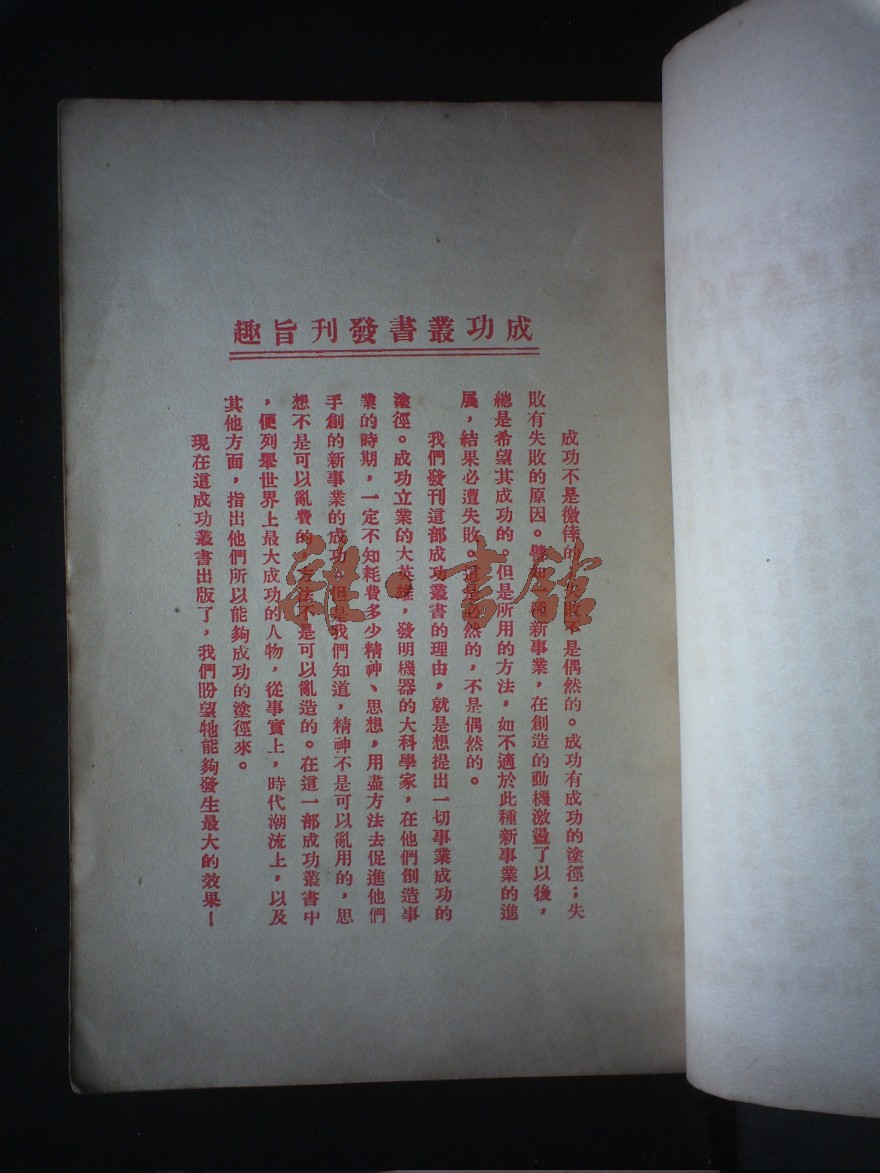 成功叢書發刊旨趣
成功不是徼倖的，失敗不是偶然的。成功有成功的塗徑；失
敗有失敗的原因。譬如一種新事業，在創造的動機激盪了以後，
總是希望其成功的。但是所用的方法，如不適於此種新事業的進
展，結果必遭失敗。這是必然的，不是偶然的。
我們發刊這部成功叢書的理由，就是想提出一切事業成功的
塗徑。成功立業的大英雄，發明機器的大科學家，在他們創造事
業的時期，一定不知耗費多少精神、思想，用盡方法去促進他們
手創的新事業的成功。但是我們知道，精神不是可以亂用的，思
想不是可以亂費的，方法不是可以亂造的。在這一部成功叢書中
，便列舉世界上最大成功的人物，從事實上，時代潮流上，以及
其他方面，指出他們所以能夠成功的塗徑來。
現在這成功叢書出版了，我們盼望牠能夠發生最大的效果！
雜·書館